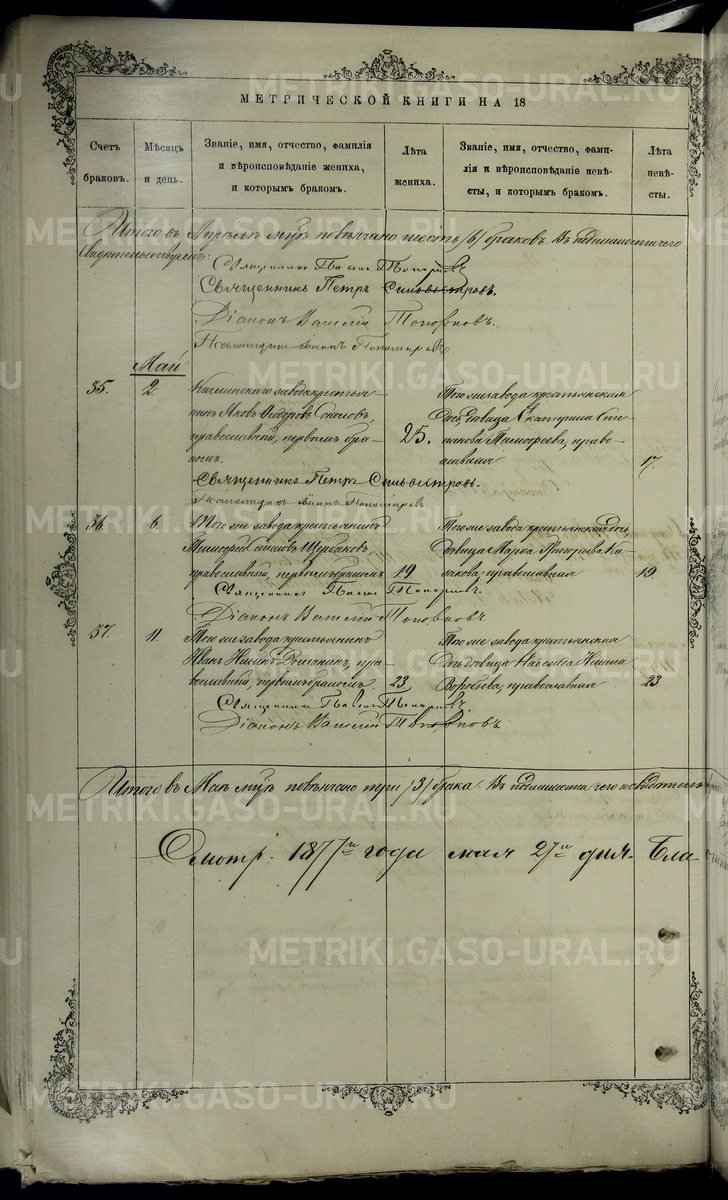 МЕТРИЧЕСКОЙ КНИГИ НА 18
Счетъ браковъ.
Мѣсяцъ и день.
Званіе, имя, отчество, фамилія
и вѣроисповѣданіе жениха,
и которымъ бракомъ.
Лѣта жениха.
Званіе, имя, отчество, фами-
лія и вѣроисповѣданіе невѣ-
сты, и которымъ бракомъ.
Лѣта невѣ-
сты.
Итого въ Апрѣлѣ м-цѣ повѣнчано шесть /6/ браковъ. Въ подлинности чего
свидѣтельствуемъ:
Священникъ
Священникъ Петръ Сильвестровъ.
Діаконъ Василій Топорковъ.
Май
35.
2.
Каслинскаго завода крестья-
нинъ Яковъ Ѳедоровъ Соколовъ,
православный, первымъ бра-
комъ.
25.
Того же завода крестьянская
дочь, дѣвица Екатерина Сте-
панова Тимофеева, право-
славная
17.
Священникъ Петръ Сильвестровъ.
36.
6.
Того же завода крестьянинъ
Тимофей Щербаковъ,
православный, первымъ бракомъ
19
Того же завода крестьянская дочь,
дѣвица Григорьева Ка-
православная
19.
Священникъ
Діаконъ Василій Топорковъ
37.
11.
Того же завода крестьянинъ
Иванъ пра-
вославный, первымъ бракомъ.
23.
Того же завода крестьянская
дочь дѣвица
Воробьева, православная
23
Священникъ
Діаконъ Василій Топорковъ.
Итого въ Маѣ м-цѣ повѣнчано три /3/ брака. Въ подлинности чего свидѣтель
Смотр. 1877го года мая 27го дня. Бла-
METRIKI.GASO-URAL.RU